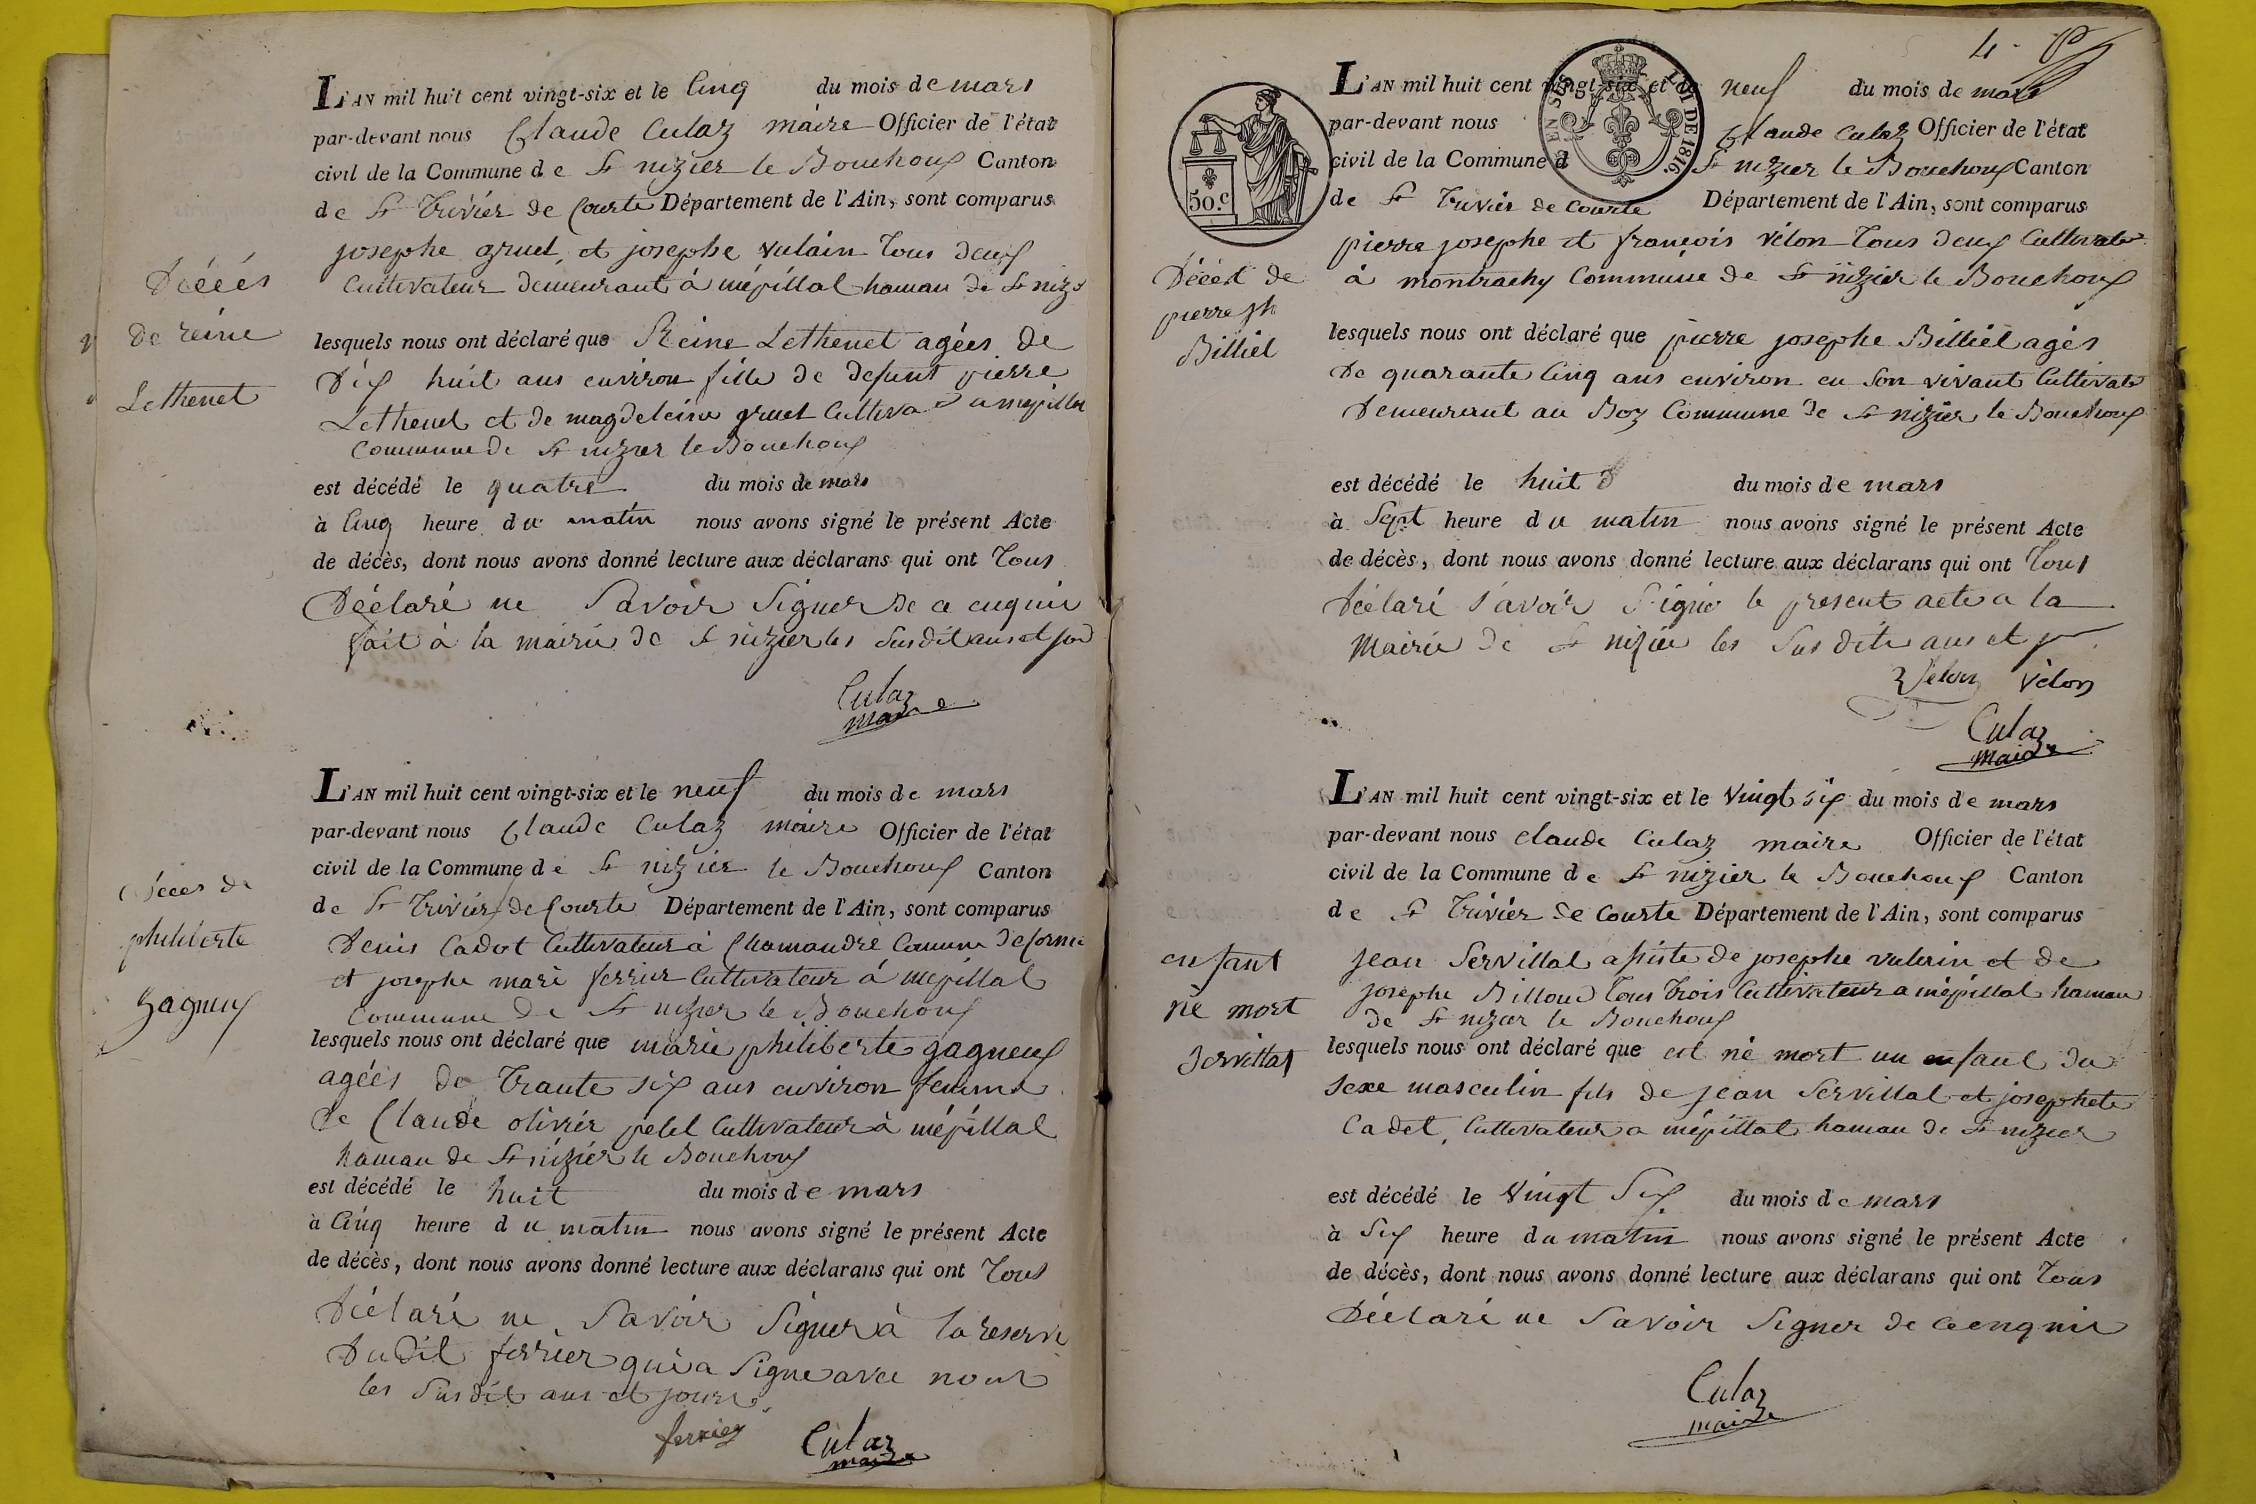 L'AN mil huit cent vingt-six et le Cinq du mois de mars
par-devant nous Claude Culaz maire Officier de l'état
civil de la Commune de St nizier le Bouchoux Canton
de St Trivier de Courte Département de l'Ain, sont comparus
josephe gruel et josephe vulain Tous deux
Cultivateur demeurant à mépillat hamau de St niz
Décés
de reine
Lethenet
lesquels nous ont déclaré que Reine Lethenet agées de
Dix huit ans environ fille de defunt pierre
Lethenet et de magdeleine gruel Cultiva a mepillat
Commune de St nizier le Bouchoux
est décédé le quatre du mois de mars
à Cinq heure du matin nous avons signé le présent Acte
de décès, dont nous avons donné lecture aux déclarans qui ont Tous
Déclaré ne Savoir Signer de ce enquir
fait à la mairie de St nizier les Susdit ans et jour
Culaz
maire
L'AN mil huit cent vingt-six et le neuf du mois de mars
par-devant nous Claude Culaz maire Officier de l'état
civil de la Commune de St nizier le Bouchoux Canton
de St Trivier de Courte Département de l'Ain, sont comparus
Décés de
philiberte
gagneux
Denis Cadot Cultivateur à Chamandré Comune de Corma
et josephe marie ferrier Cultivateur à mépillat
Commune De St nizier le Bouchoux
lesquels nous ont déclaré que marie philiberte gagneux
agéés de Trante six ans environ femme
de Claude olivier petel Cultivateur à mépillat
hamau de St nizier le Bouchoux
est décédé le huit du mois de mars
à Cinq heure du matin nous avons signé le présent Acte
de décès, dont nous avons donné lecture aux déclarans qui ont Tous
Déclaré ne Savoir Signer à la reserve
Dudit ferrier qui a Signe avec nous
les Susdit ans et jours
ferrier Culaz
maire
4
NE SUS
LOI DE 1816.
50.c
L'AN mil huit cent vingt-six et le neuf du mois de mars
par-devant nous Claude Culaz Officier de l'état
civil de la Commune d St nizier le Bouchoux Canton
de St Trivier de Courte Département de l'Ain, sont comparus
pierre josephe et françois vélon Tous deux Cultivate
à montrachy Commune de St nizier le Bouchoux
Décès de
pierre jh
Billiel
lesquels nous ont déclaré que pierre josephe Billiel agés
De quarante Cinq ans environ en Son vivant Cultivate
Demeurant au Boz Commune de St nizier le Bouchoux
est décédé le huit du mois de mars
à Sept heure du matin nous avons signé le présent Acte
de décès, dont nous avons donné lecture aux déclarans qui ont Tous
Déclaré Savoir Signé le present acte a la
Mairie de St nizier les Susdite ans et
Vélon vélon
Culaz
maire
L'AN mil huit cent vingt-six et le vingt six du mois de mars
par-devant nous claude Culaz maire Officier de l'état
civil de la Commune de St nizier le Bouchoux Canton
de St Trivier de Courte Département de l'Ain, sont comparus
enfant
né mort
Servillat
jean Servillat assiste de josephe vulerin et de
josephe Billoud Tous Trois Cultivateur a mépillat hamau
de St nizier le Bouchoux
lesquels nous ont déclaré que est né mort un enfant du
sexe masculin fils de jean Servillat et josephete
Cadet, Cultivateur a mépillat hamau de St nizier
est décédé le vingt Six du mois de mars
à Six heure du matin nous avons signé le présent Acte
de décès, dont nous avons donné lecture aux déclarans qui ont Tous
Déclaré ne Savoir Signer de ce enquir
Culaz
maire